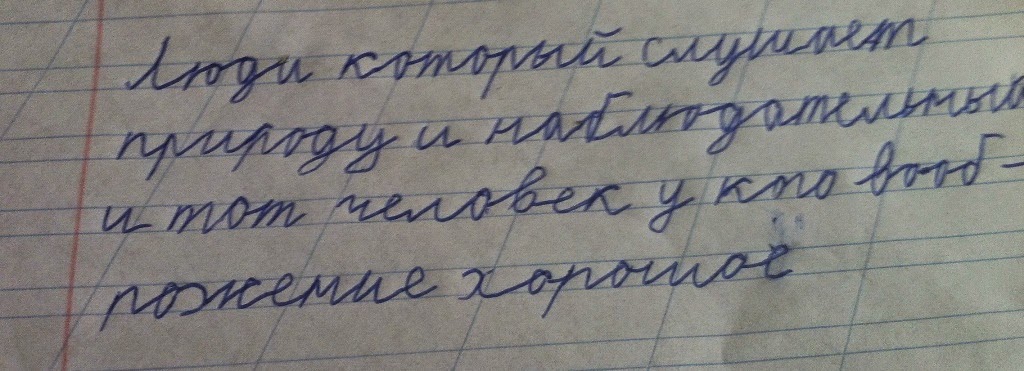 Люди который слушает
природу и наблюдательный
и тот человек у кто вооб-
рожение хорошое